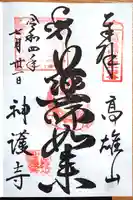 奉拝
高雄山
薬師如来
令和四年
七月廿一日
神護寺